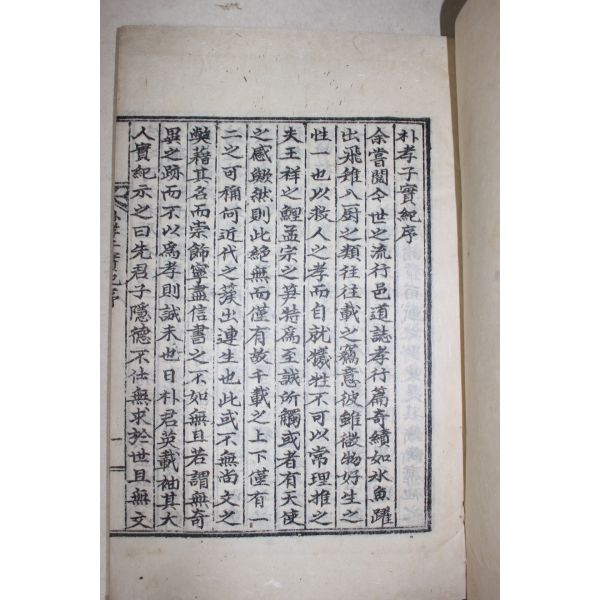 朴孝子實紀序
余嘗閱今世之流行邑道誌孝行篇奇績如水魚躍
出飛雉入厨之類往往載之竊意彼雖微物好生之
性一也以救人之孝而自就犧牲不可以常理推之
夫王祥之鯉孟宗之笋特爲至誠所觸或者有天使
之感歟然則此絶無而僅有故千載之上下僅有一
二之可稱何近代之簇出連生也此或不無尚文之
弊藉其名而崇飾寧盡信書之不如無且若謂無奇
異之跡而不以爲孝則誠未也日朴君英載袖其大
人實紀示之曰先君子隱德不仕無求於世且無文
朴孝子實紀序
一